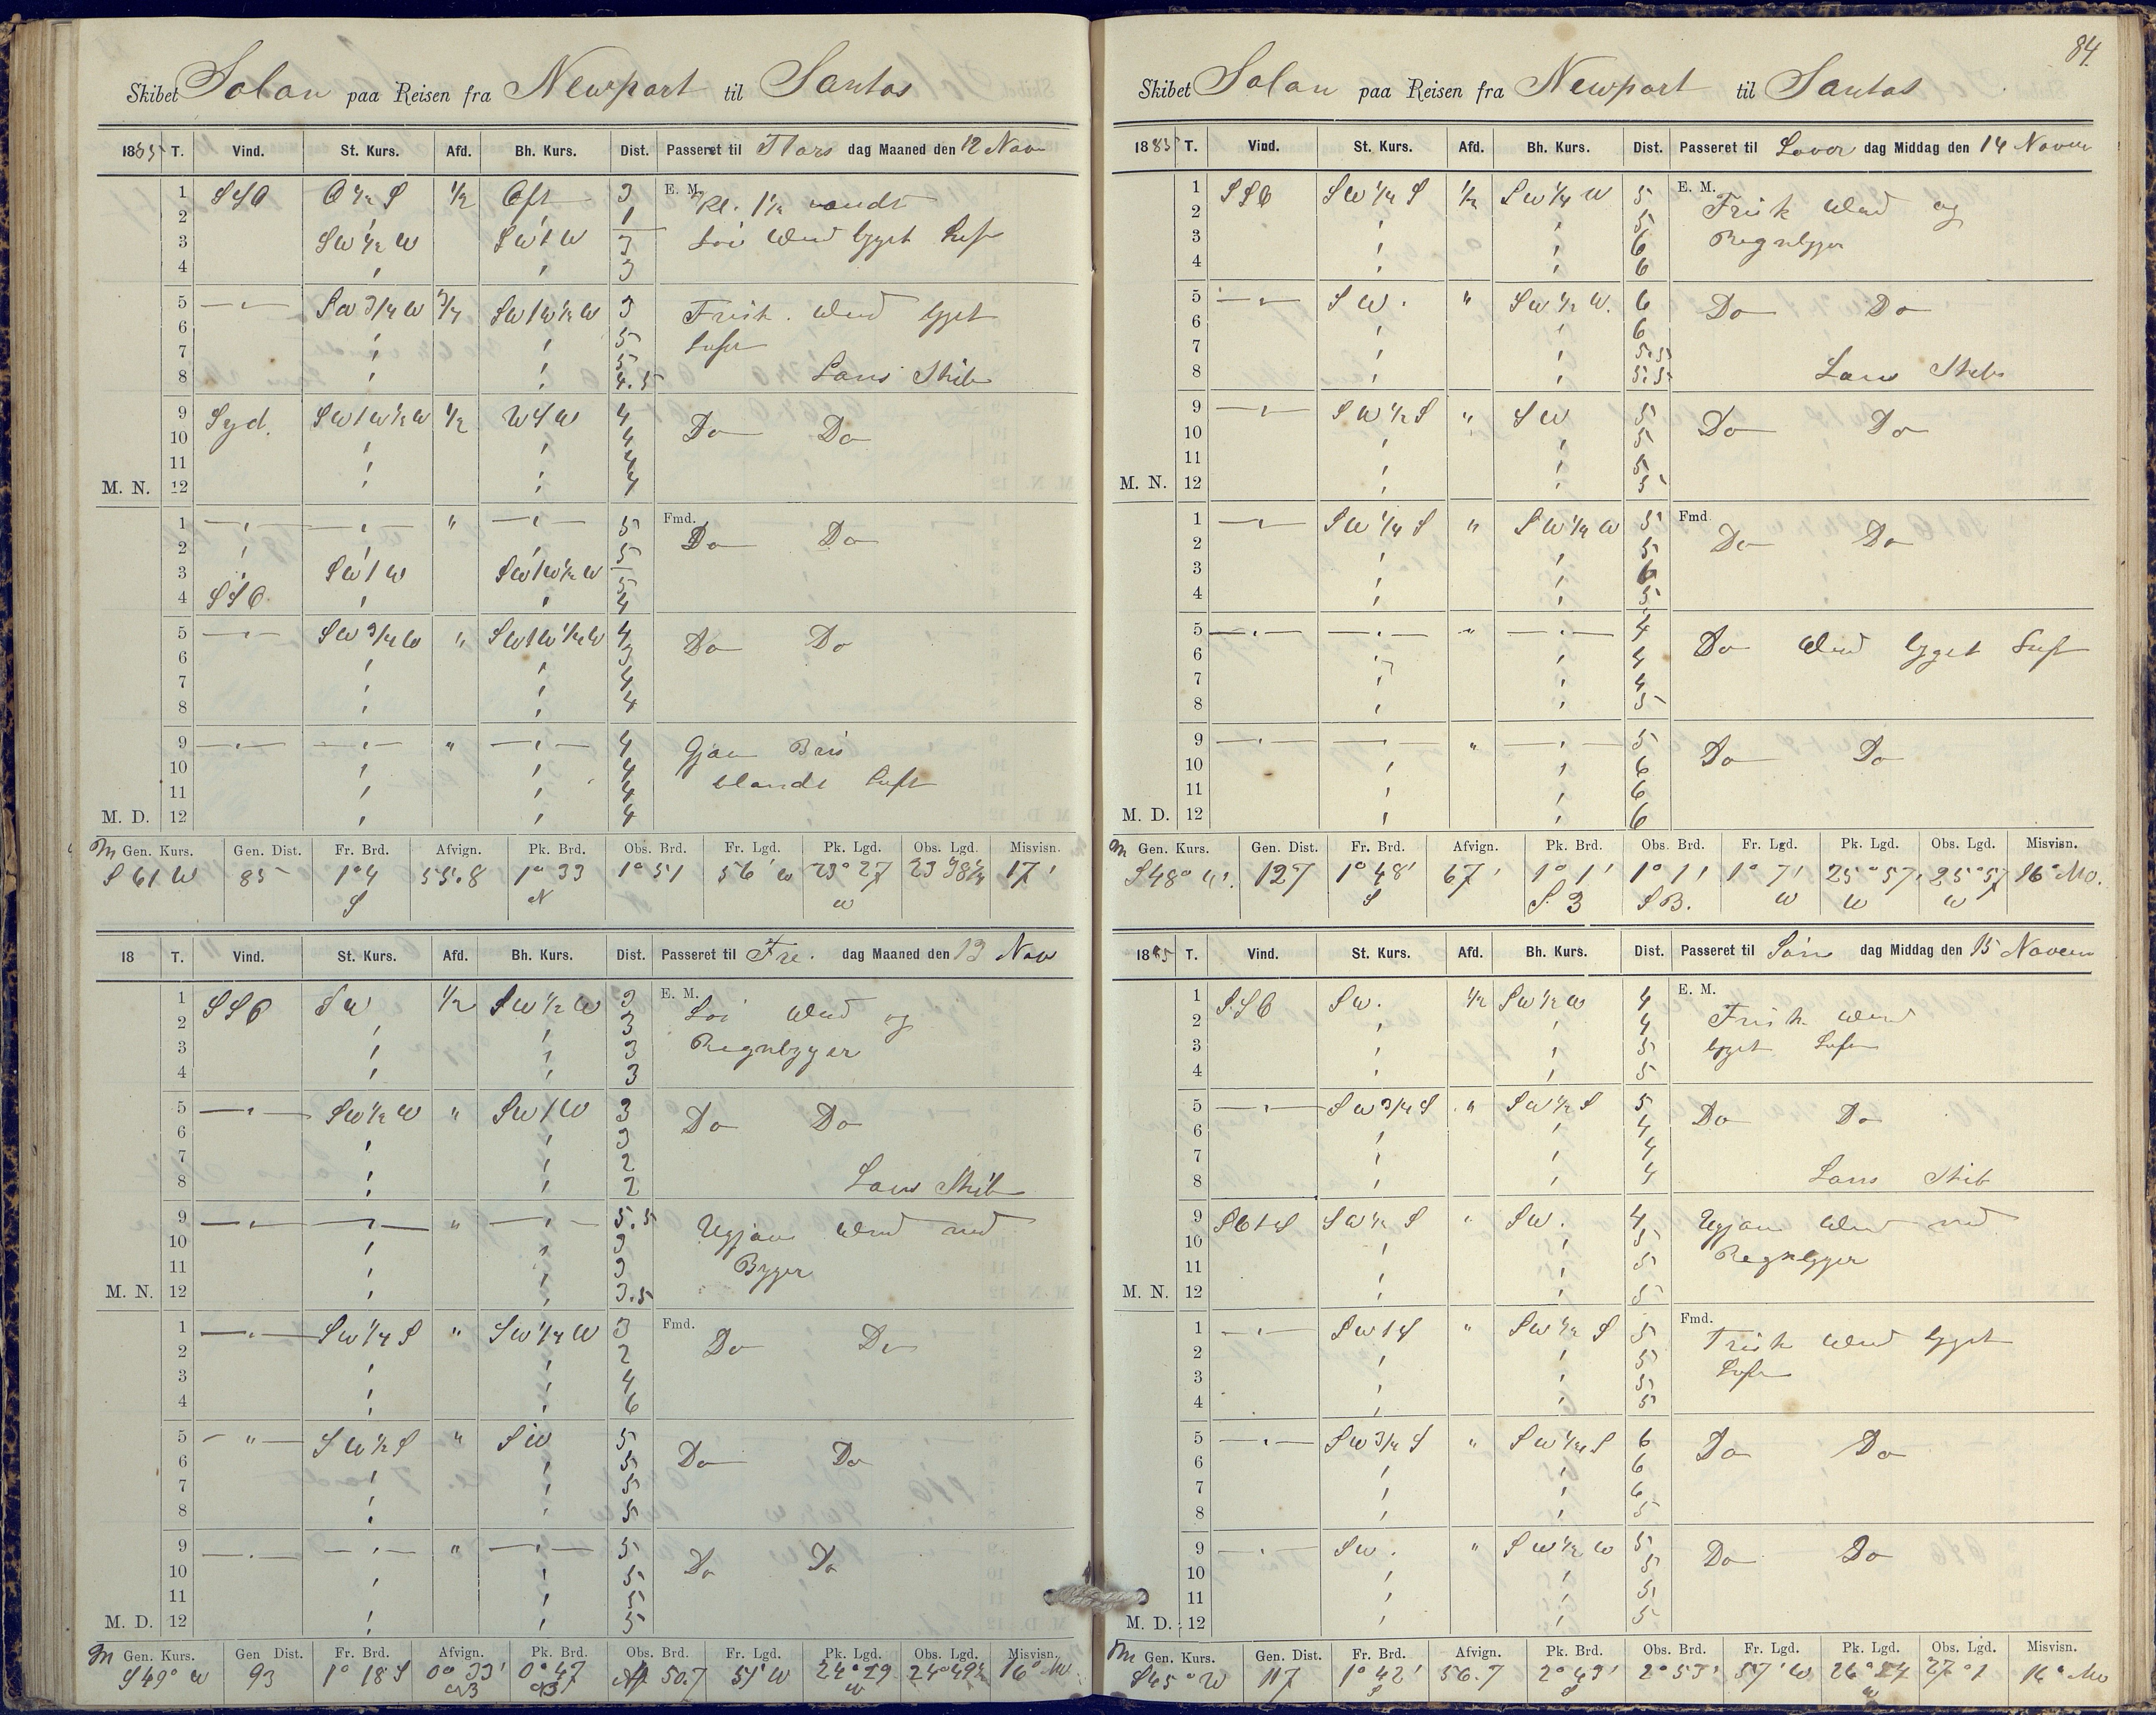 84.
Skibet Solan paa Reisen fra Newport til Santos
1885 T. Vind. St. Kurs. Afd. Bh. Kurs. Dist. Passeret til Thors dag Maaned den 12 Nov
E. M.
1 SSO O ½ S ½ Oft 3 Kl. 1½ vendt
2 1
3 SW ½ W SW 1 W 3 Loi Wind bÿget Luft
4 3
5 SW 3/4 W 3/4 SW 1 W ½ W 3 Frisk Wind byget
6 5 Luft
7 5
8 4.5 Lans Skib
9 Syd. SW 1 W ½ W ½ W S W 4 Do Do
10 4
11 4
M. N. 12 4
Fmd.
1 " 5 Do Do
2 5
3 SW 1 W SW 1 W ½ W 5
4 SSO 4
5 SW 3/4 W " SW 1 W ¼ W 4 Do Do
6 3
7 4
8 4
9 " 4 Gjav Bris
10 4
11 4 blandt Luft
M. D. 12 4
M Gen. Kurs. Gen. Dist. Fr. Brd. Afvign. Pk. Brd. Obs. Brd. Fr. Lgd. Pk. Lgd. Obs. Lgd. Misvisn.
S 61 W 85 1° 4 55.8 1° 33 1° 51 56' W 23° 27 23 38¼ 17'
S N W
18 T. Vind. St. Kurs. Afd. Bh. Kurs. Dist. Passeret til Fre. dag Maaned den 13 Nov
E. M.
1 SSO SW ½ SW ½ W 3 Loi Wind og
2 3
3 3 Regnbyger
4 3
5 SW ½ W " SW 1 W 3 Do Do
6 3
7 2
8 2 Lans Skib
9 " 5.5 Ugjav Wind med
10 3
11 3 Byger
M. N. 12 3.5
Fmd.
1 SW ¼ S " SW ¼ W 3 Do Do
2 2
3 4
4 6
5 " SW ½ S " SW 5 Do Do
6 5
7 5
8 5
9 " 5 Do Do
10 5
11 5
M. D. 12 5
M Gen. Kurs. Gen Dist. Fr. Brd. Afvign. Pk. Brd. Obs. Brd. Fr. Lgd. Pk. Lgd. Obs. Lgd. Misvisn.
S 49° W 93 1° 18 S 0° 33' 0° 47 50.7 51' W 24° 29 24° 49½ 16°
W
Skibet Solan paa Reisen fra Newport til Santos
1885 T. Vind. St. Kurs. Afd. Bh. Kurs. Dist. Passeret til Løver dag Middag den 14 Novem
E. M.
1 SSO SW ¼ S ½ SW ¼ W 5 Frisk Wind og
2 5
3 6 Regnbyger
4 6
5 SW. " SW ½ W. 6 Do Do
6 6
7 5.5
8 5.5 Lans Skib
9 SW ½ S " SW 5 Do Do
10 5
11 5
M. N. 12 5
Fmd.
1 SW ¼ S " SW ¼ W 5 Do Do
2 5
3 6
4 5
5 " 4 Do Wind byget Luft
6 4
7 4
8 5
9 " 5 Do Do
10 6
11 6
M. D. 12 6
M Gen. Kurs. Gen. Dist. Fr. Brd. Afvign. Pk. Brd. Obs. Brd. Fr. Lgd. Pk. Lgd. Obs. Lgd. Misvisn.
S 48° W. 127 1° 48' 67' 1° 1' 1° 1' 1° 7' 25° 57' 25° 57 16°
S S. B S B. W W W
1885 T. Vind. St. Kurs. Afd. Bh. Kurs. Dist. Passeret til Søn dag Middag den 15 Novem
E. M.
1 SSO SW. ½ SW ½ W 4 Frisk Wind
2 4
3 5 byget Luft
4 5
5 SW 3/4 S " SW ½ S 5 Do Do
6 4
7 4
8 4 Lans Skib
9 SO 1 S SW ½ S " SW. 4 Ugjav Wind med
10 5
11 5 Regnbyger
M. N. 12 5
Fmd.
1 SW 1 S " SW ½ S 5 Frisk Wind byget
2 5
3 5 Luft
4 5
5 SW 3/4 S " SW ¼ S 6 Do Do
6 6
7 6
8 5
9 SW. " SW ½ W 5 Do Do
10 5
11 5
M. D. 12 5
M Gen. Kurs. Gen. Dist. Fr. Brd. Afvign. Pk. Brd. Obs. Brd. Fr. Lgd. Pk. Lgd. Obs. Lgd. Misvisn.
S 45° W 117 1° 42' 56.7 2° 43' 2° 53' 57' W 26° 54 27° 1 16°
S S W